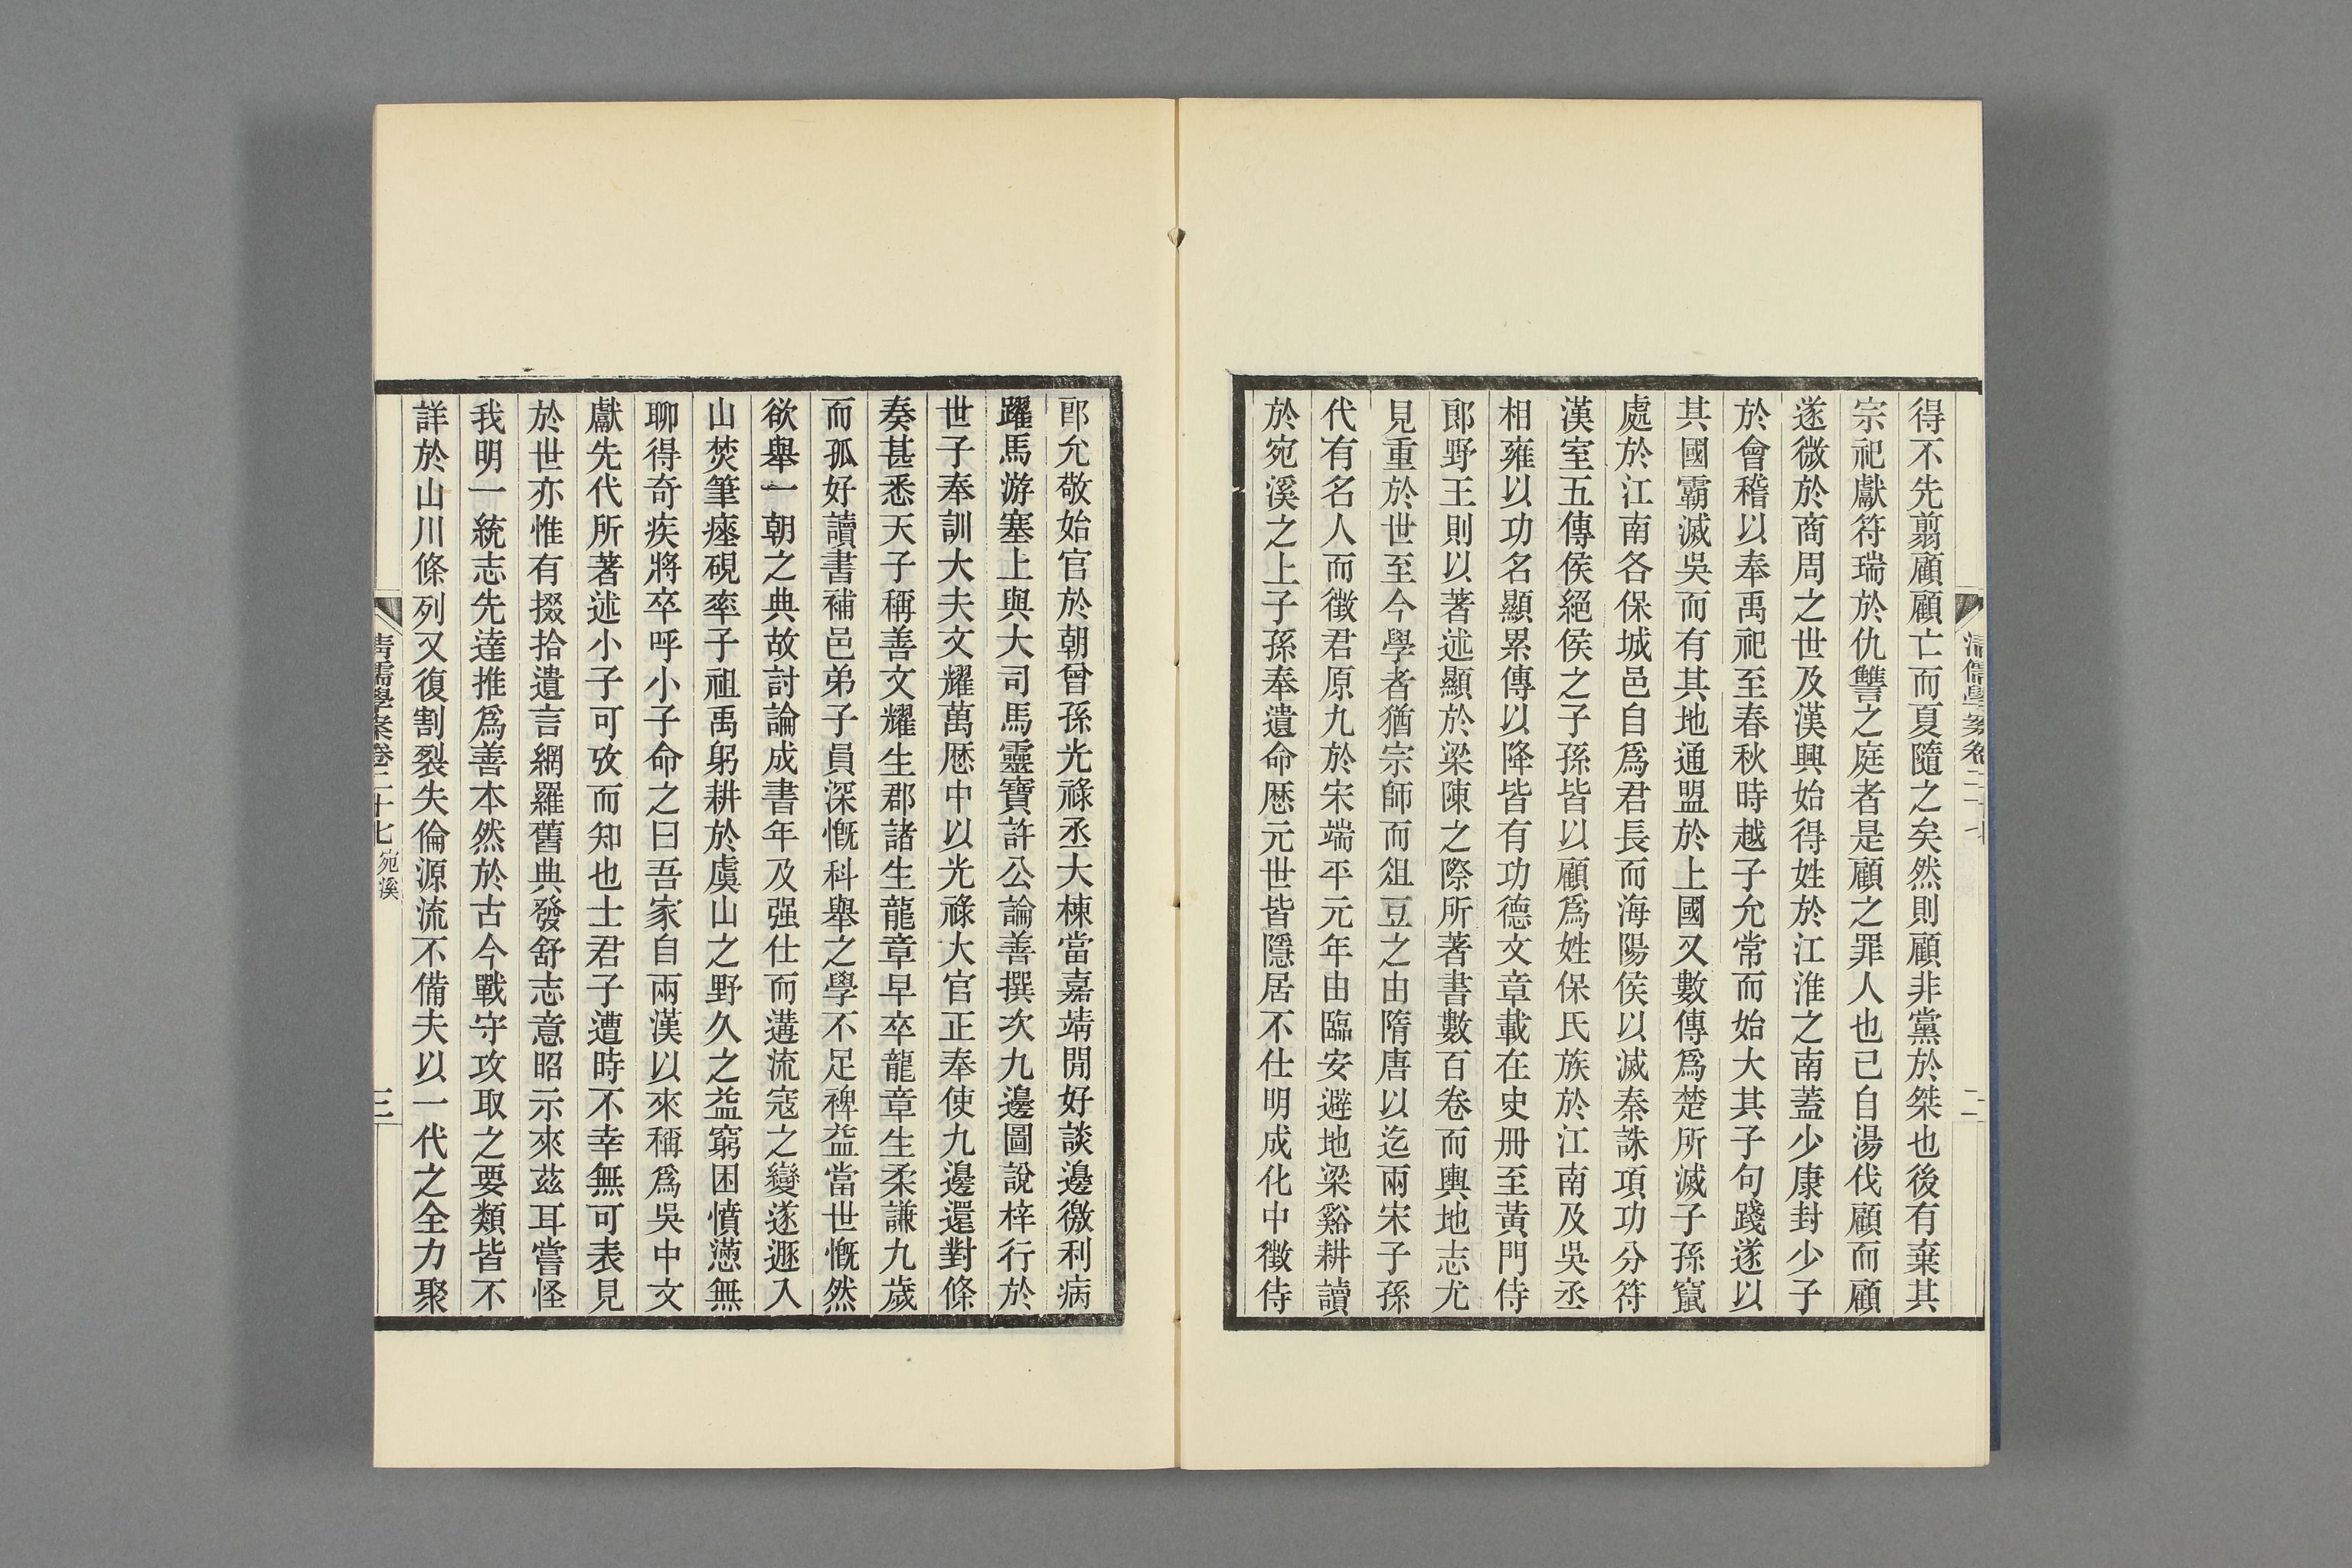 得不先翦顧顧亡而夏隨之矣然則顧非黨於桀也後有棄其
宗祀獻符瑞於仇讐之庭者是顧之罪人也己自湯伐顧而顧
遂微於商周之世及漢興始得姓於江淮之南蓋少康封少子
於會稽以奉禹祀至春秋時越子允常而始大其子句踐遂以
其國霸滅吳而有其地通盟於上國又數傳爲楚所滅子孫竄
處於江南各保城邑自爲君長而海陽侯以滅秦誅項功分符
漢室五傳侯絕侯之子孫皆以顧爲姓保氏族於江南及吳丞
相雍以功名顯累傳以降皆有功德文章載在史册至黃門侍
郎野王則以著述顯於梁陳之際所著書數百卷而輿地志尤
見重於世至今學者猶宗師而俎豆之由隋唐以迄兩宋子孫
代有名人而徵君原九於宋端平元年由臨安避地梁谿耕讀
於宛溪之上子孫奉遺命歷元世皆隱居不仕明成化中徵侍
郎允敬始官於朝曾孫光祿丞大棟當嘉靖閒好談邊徼利病
躍馬游塞上與大司馬靈寶許公論善撰次九邊圖說梓行於
世子奉訓大夫文耀萬歷中以光祿大官正奉使九邊還對條
奏甚悉天子稱善文耀生郡諸生龍章早卒龍章生柔謙九歲
而孤好讀書補邑弟子員深慨科舉之學不足裨益當世慨然
欲舉一朝之典故討論成書年及强仕而遘流寇之變遂遯入
山焚筆瘞硯率子祖禹躬耕於虞山之野久之益窮困憤懣無
聊得奇疾將卒呼小子命之曰吾家自兩漢以來稱爲吳中文
獻先代所著述小子可攷而知也士君子遭時不幸無可表見
於世亦惟有掇拾遺言網羅舊典發舒志意昭示來茲耳嘗怪
我明一統志先達推爲善本然於古今戰守攻取之要類皆不
詳於山川條列又復割裂失倫源流不備夫以一代之全力聚
清儒學案卷二十七 宛溪
三